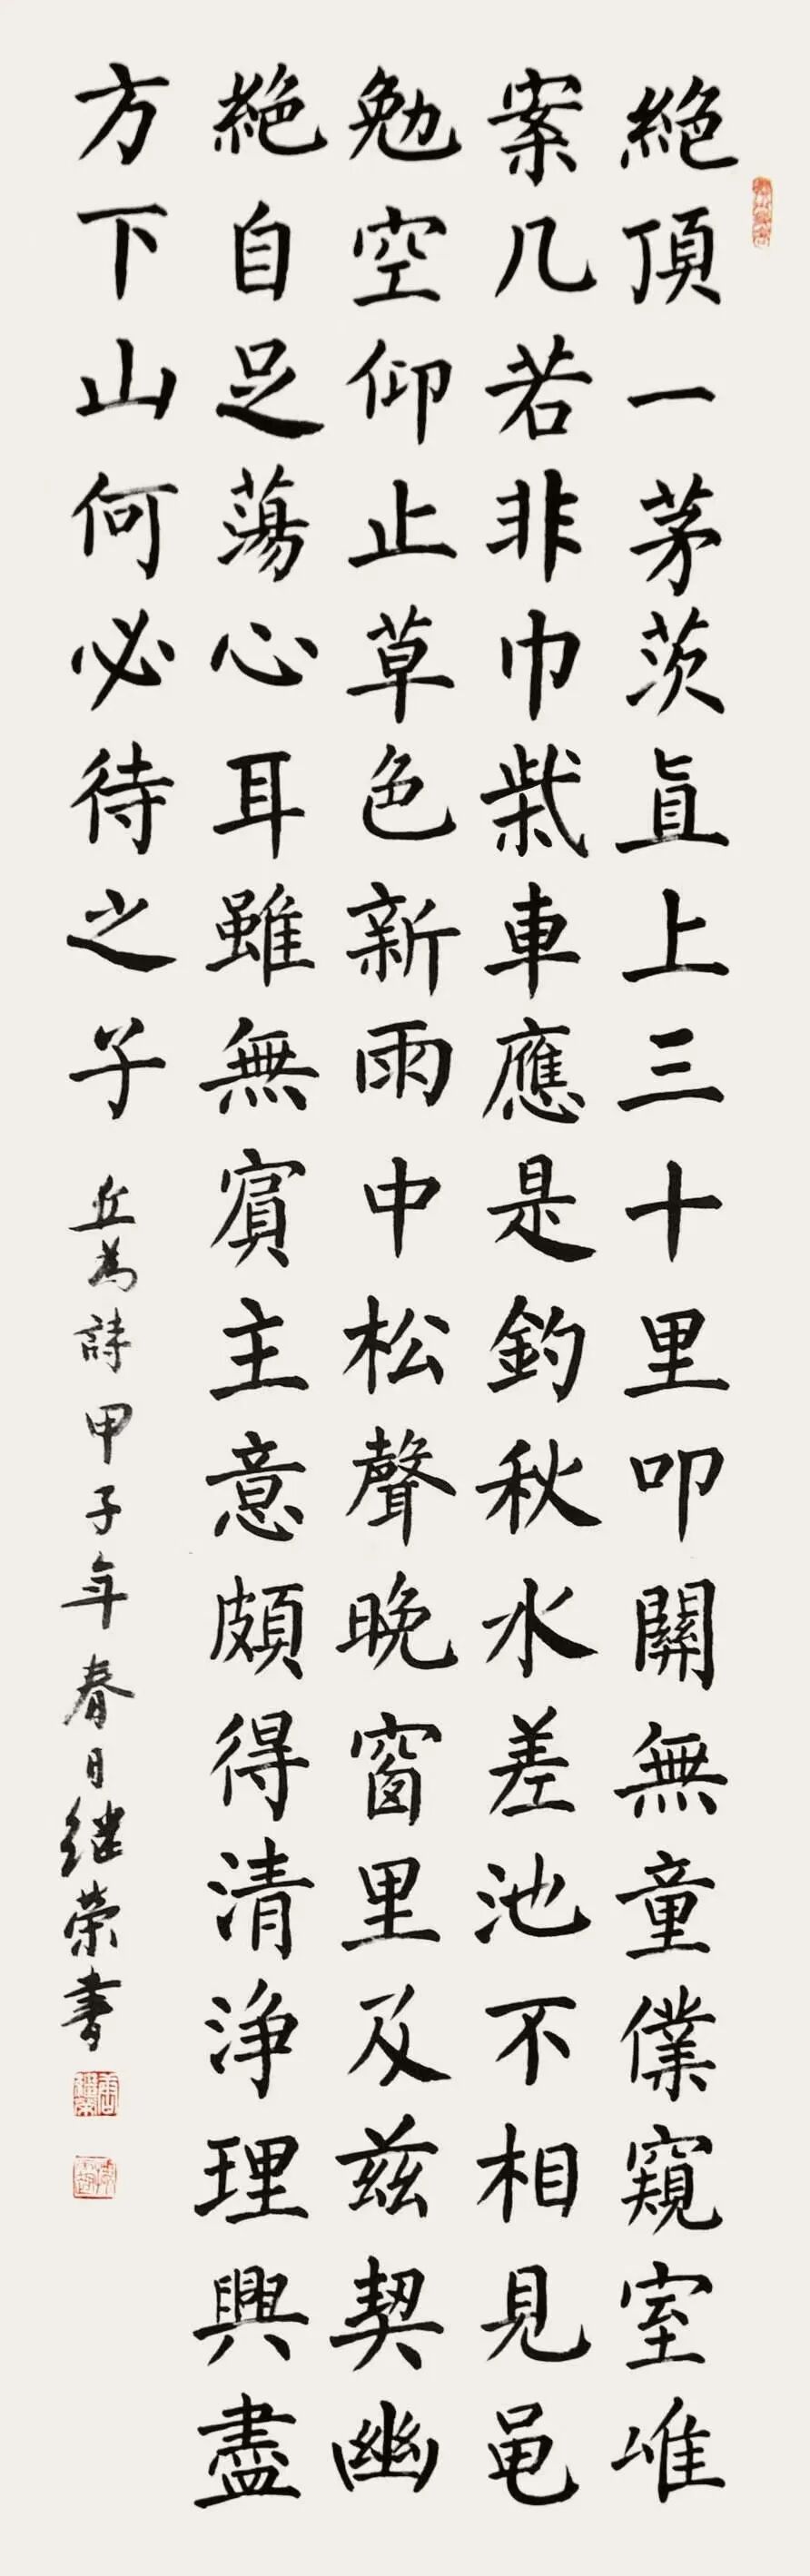 絶頂一茅茨直上三十里叩關無童僕窺室唯
案几若非巾柴車應是釣秋水差池不相見黽
勉空仰止草色新雨中松聲晚窗里及茲契幽
絶自足蕩心耳雖無賓主意頗得清淨理興盡
方下山何必待之子 丘為詩甲子年春日继荣書